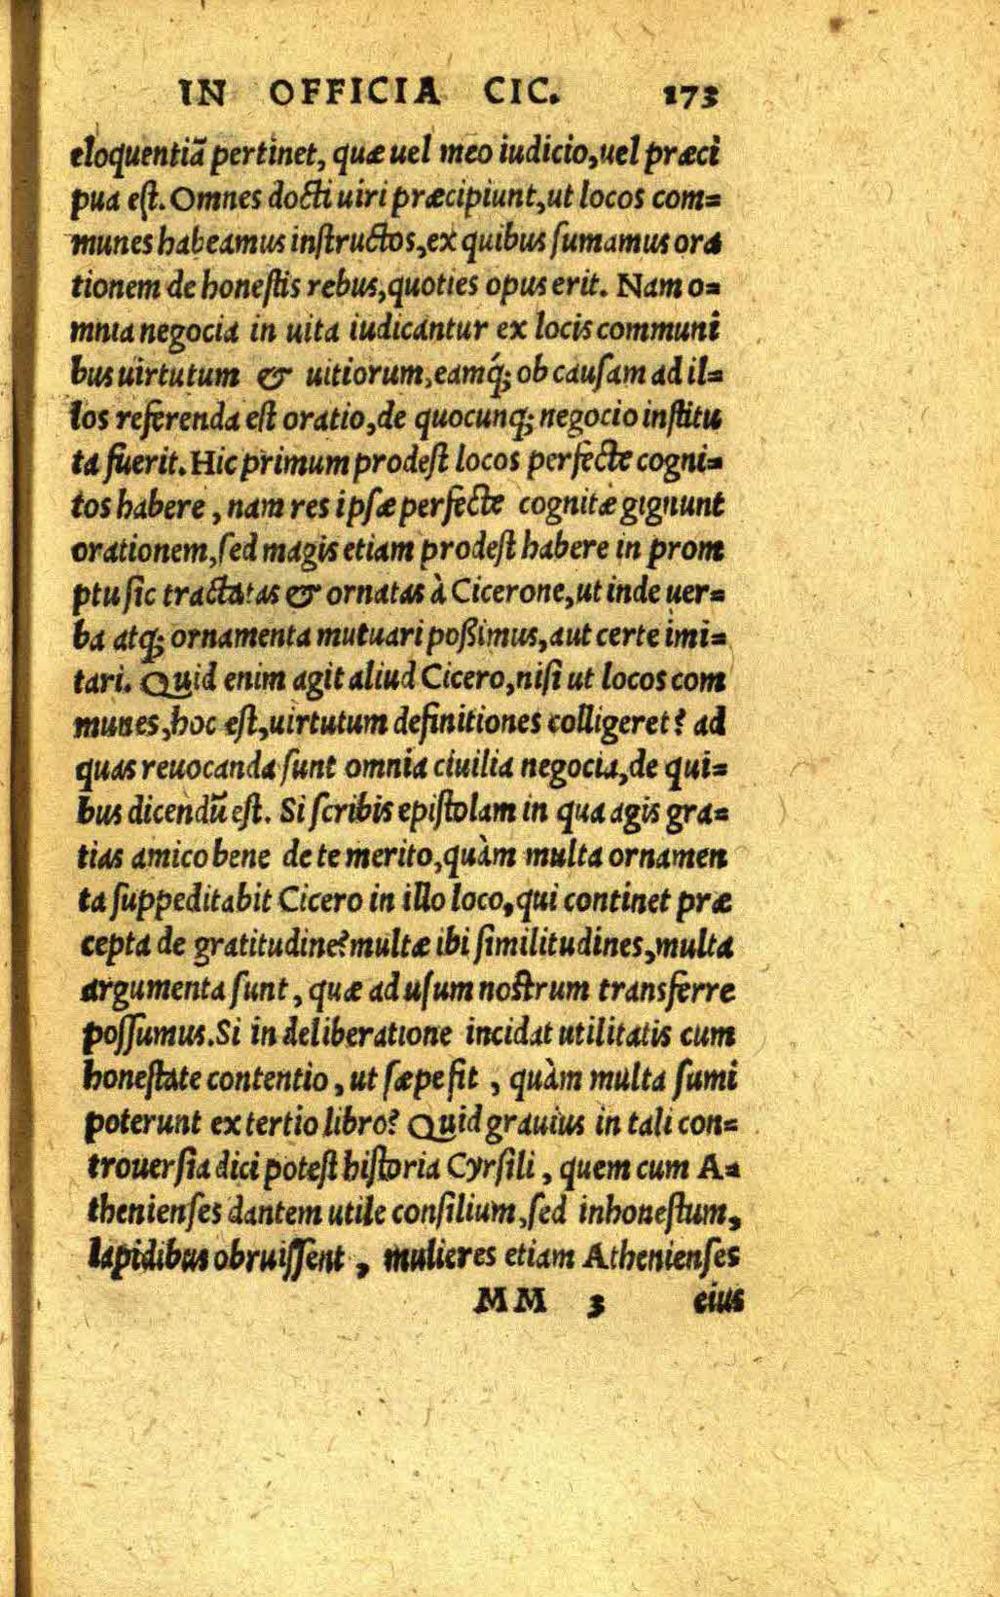 IN OFFICIA CIC. 173
eloquentiã pertinet, quæ uel meo iudicio, uel præci
pua eſt. Omnes docti uiri præcipiunt, ut locos com=
munes habeamus inſtructos, ex quibus ſumamus ora
tionem de honeſtis rebus, quoties opus erit. Nam o=
mnia negocia in uita iudicantur ex locis communi
bus uirtutum & uitiorum, eamq́; ob cauſam ad il=
los referenda eſt oratio, de quocunq; negocio inſtitu
ta fuerit. Hic primum prodeſt locos perfecte cogni=
tos habere, nam res ipſæ perfecte cognitæ gignunt
orationem, ſed magis etiam prodeſt habere in prom
ptu ſic tractatas & ornatas à Cicerone, ut inde uer=
ba atq; ornamenta mutuari poßimus, aut certe imi=
tari. Quid enim agit aliud Cicero, niſi ut locos com
munes, hoc eſt, uirtutum definitiones colligeret? ad
quas reuocanda ſunt omnia ciuilia negocia, de qui=
bus dicendũ eſt. Si ſcribis epiſtolam in qua agis gra=
tias amico bene de te merito, quàm multa ornamen
ta ſuppeditabit Cicero in illo loco, qui continet præ
cepta de gratitudine? multæ ibi ſimilitudines, multa
argumenta ſunt, quæ ad uſum noſtrum transferre
poſſumus. Si in deliberatione incidat utilitatis cum
honeſtate contentio, ut ſæpe fit, quàm multa ſumi
poterunt ex tertio libro? Quid grauius in tali con=
trouerſia dici poteſt hiſtoria Cyrſili, quem cum A=
thenienſes dantem utile conſilium, ſed inhoneſtum,
lapidibus obruiſſent, mulieres etiam Athenienſes
MM 3 eius